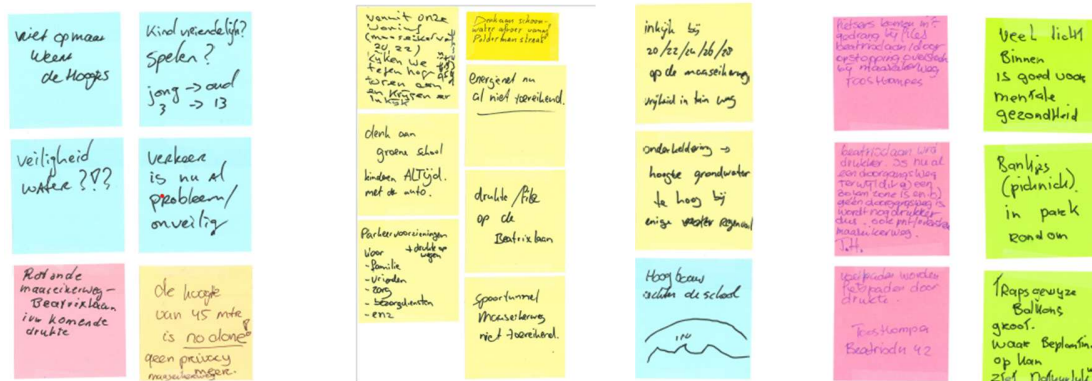 niet op maar
weert
de Hoogjes
Kindvriendelijk?
Spelen?
jong → oud
3 → 13
veiligheid
water???
verkeer
is nu Al
probleem/
onveilig
Rotonde
maaseikerweg -
Beatrixlaan
ivm komende
drukte
de hoogte
van 45 mtr
is no alone!
geen privacy
meer.
maaseikerweg
vanuit onze
woning
20, 22)
kijken we
tegen hoge
toren aan
en krijgen er
inkijk
denk aan
groene school
kinderen ALTijd
met de auto.
Parkeervoorzieningen
voor
→ drukte op
wegen
- familie
- vrienden
- zorg
- bezorgdiensten
- enz
water afvoer vanaf
energienet nu
al niet toereikend.
drukte / file
op de
Beatrixlaan
spoortunnel
Maaseikerweg
niet toereikend.
inkijk bij
20/22/24/26/28
op de maaseikerweg
vrijheid in tuin weg
onderkeldering →
hoogte grondwater
te hoog bij
enige regenval
Hoogbouw
achter de school
fietsers komen in
gedrang bij files
Beatrixlaan/door
opstopping oversteek
bij maaseikerweg
Beatrixlaan wordt
drukker. Is nu al
een doorgangsweg
terwijl dit a) een
zone is en b)
geen doorgangsweg is
wordt nog drukker
maaseikerweg.
T.H.
voetpaden worden
fietspaden door
drukte.
42
Veel licht
Binnen
is goed voor
mentale
gezondheid
Bankjes
(picknick).
in park
rondom
Trapsgewijze
Balkons
groot.
waar Beplanting
op kan
ziet natuurlijk